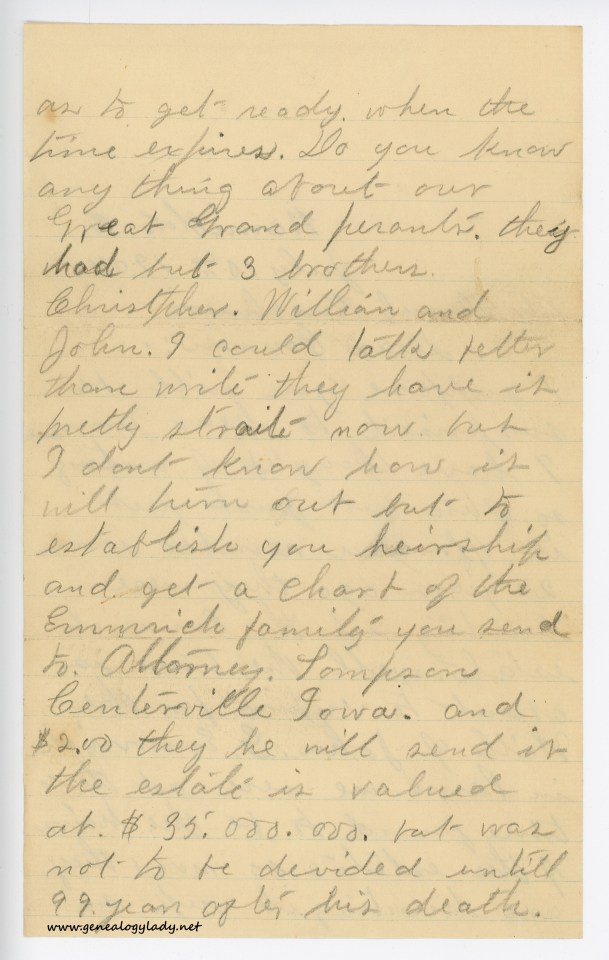 as to get ready. when the
time expires. Do you know
any thing about our
Great Grand perants. they
had but 3 brothers.
Christpher. Willian and
John. I could talk better
than write they have it
pretty straite now. but
I dont know how it
will turn out but to
establish you heirship
and get a chart of the
Emmrich family you send
to. Attorney. Tompson
Centerville Iowa. and
$2.00 they he will send it
the estate is valued
at. $ 35.000.000. but was
not to be devided untill
99. year after his death.
www.genealogylady.net